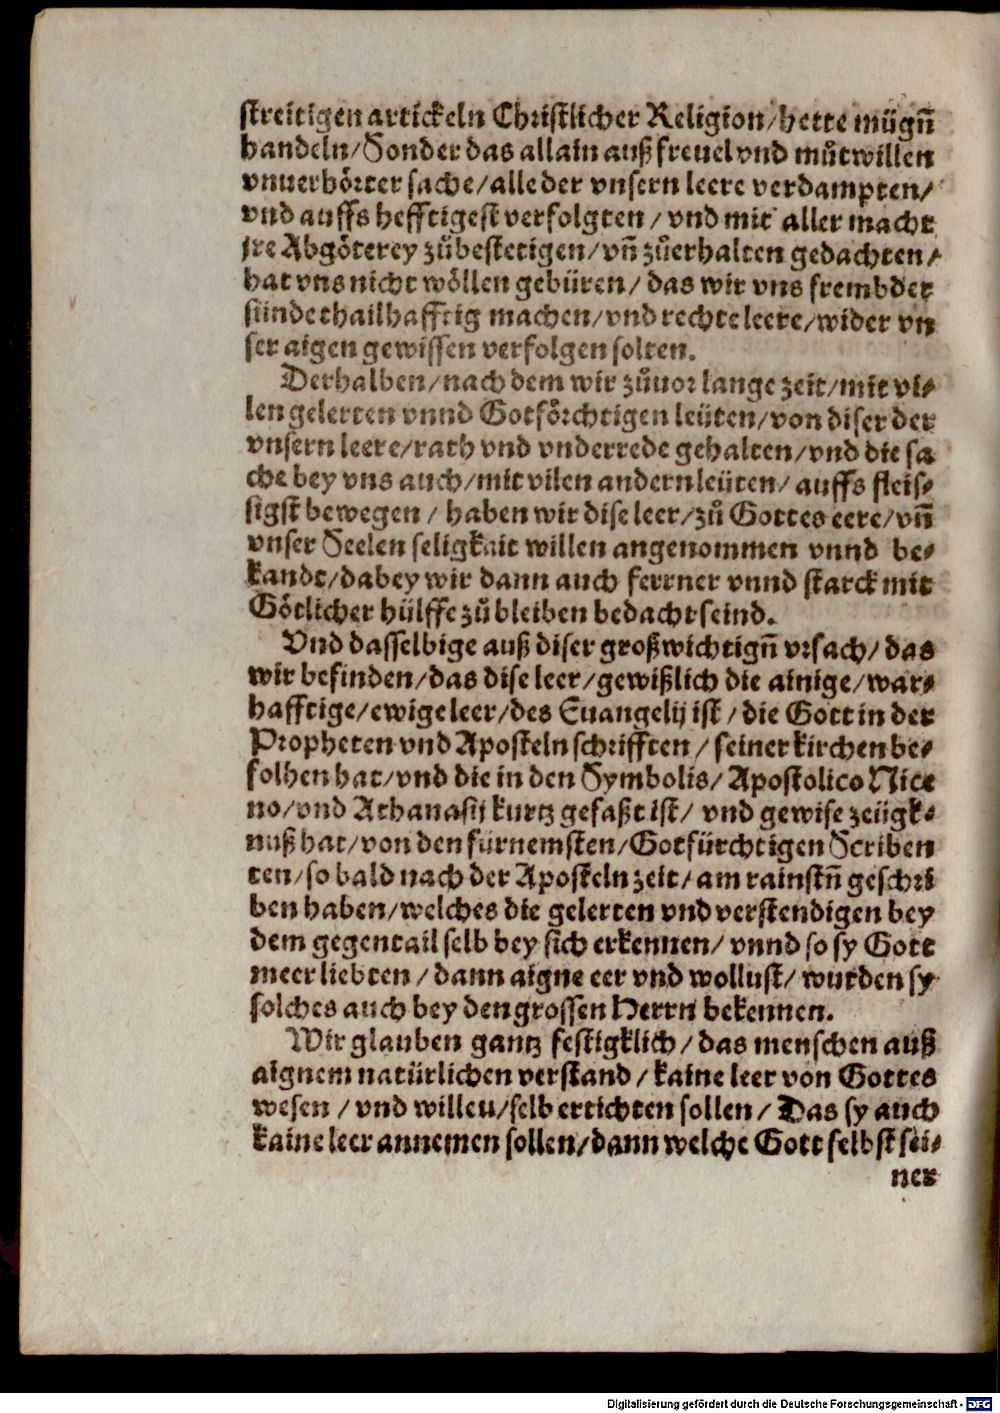 streitigen artickeln Christlicher Religion/ hette mügñ
handeln/ Sonder das allain auß freuel vnd můtwillen
vnuerhörter sache/ alle der vnsern leere verdampten/
vnd auffs hefftigest verfolgten / vnd mit aller macht
jre Abgöterey zůbestetigen/ vñ zůerhalten gedachten/
hat vns nicht wöllen gebüren/ das wir vns frembder
sünde thailhafftig machen/ vnd rechte leere/ wider vn
ser aigen gewissen verfolgen solten.
Derhalben/ nach dem wir zůuor lange zeit/ mit vi⸗
len gelerten vnnd Gotförchtigen leüten/ von diser der
vnsern leere/ rath vnd vnderrede gehalten/ vnd die sa
che bey vns auch/ mit vilen andern leüten/ auffs fleis⸗
sigst bewegen / haben wir dise leer/ zů Gottes eere/ vñ
vnser Seelen seligkait willen angenommen vnnd be⸗
kandt/ dabey wir dann auch ferrner vnnd starck mit
Götlicher hülffe zů bleiben bedacht seind.
Vnd dasselbige auß diser großwichtigñ vrsach/ das
wir befinden/ das dise leer/ gewißlich die ainige/ war⸗
hafftige/ ewige leer/ des Euangelij ist / die Gott in der
Propheten vnd Aposteln schrifften / seiner kirchen be⸗
folhen hat/ vnd die in den Symbolis/ Apostolico Nice
no/ vnd Athanasij kurtz gefaßt ist/ vnd gewise zeügk⸗
nuß hat/ von den fürnemsten/ Gotfürchtigen Scriben
ten/ so bald nach der Aposteln zeit/ am rainstñ geschri
ben haben/ welches die gelerten vnd verstendigen bey
dem gegentail selb bey sich erkennen/ vnnd so sy Gott
meer liebten / dann aigne eer vnd wollust/ wurden sy
solches auch bey den grossen Herrn bekennen.
Wir glauben gantz festigklich/ das menschen auß
aignem natürlichen verstand / kaine leer von Gottes
wesen / vnd willeu/ selb ertichten sollen / Das sy auch
kaine leer annemen sollen/ dann welche Gott selbst sei⸗
ner
Digitalisierung gefördert durch die Deutsche Forschungsgemeinschaft - DFG